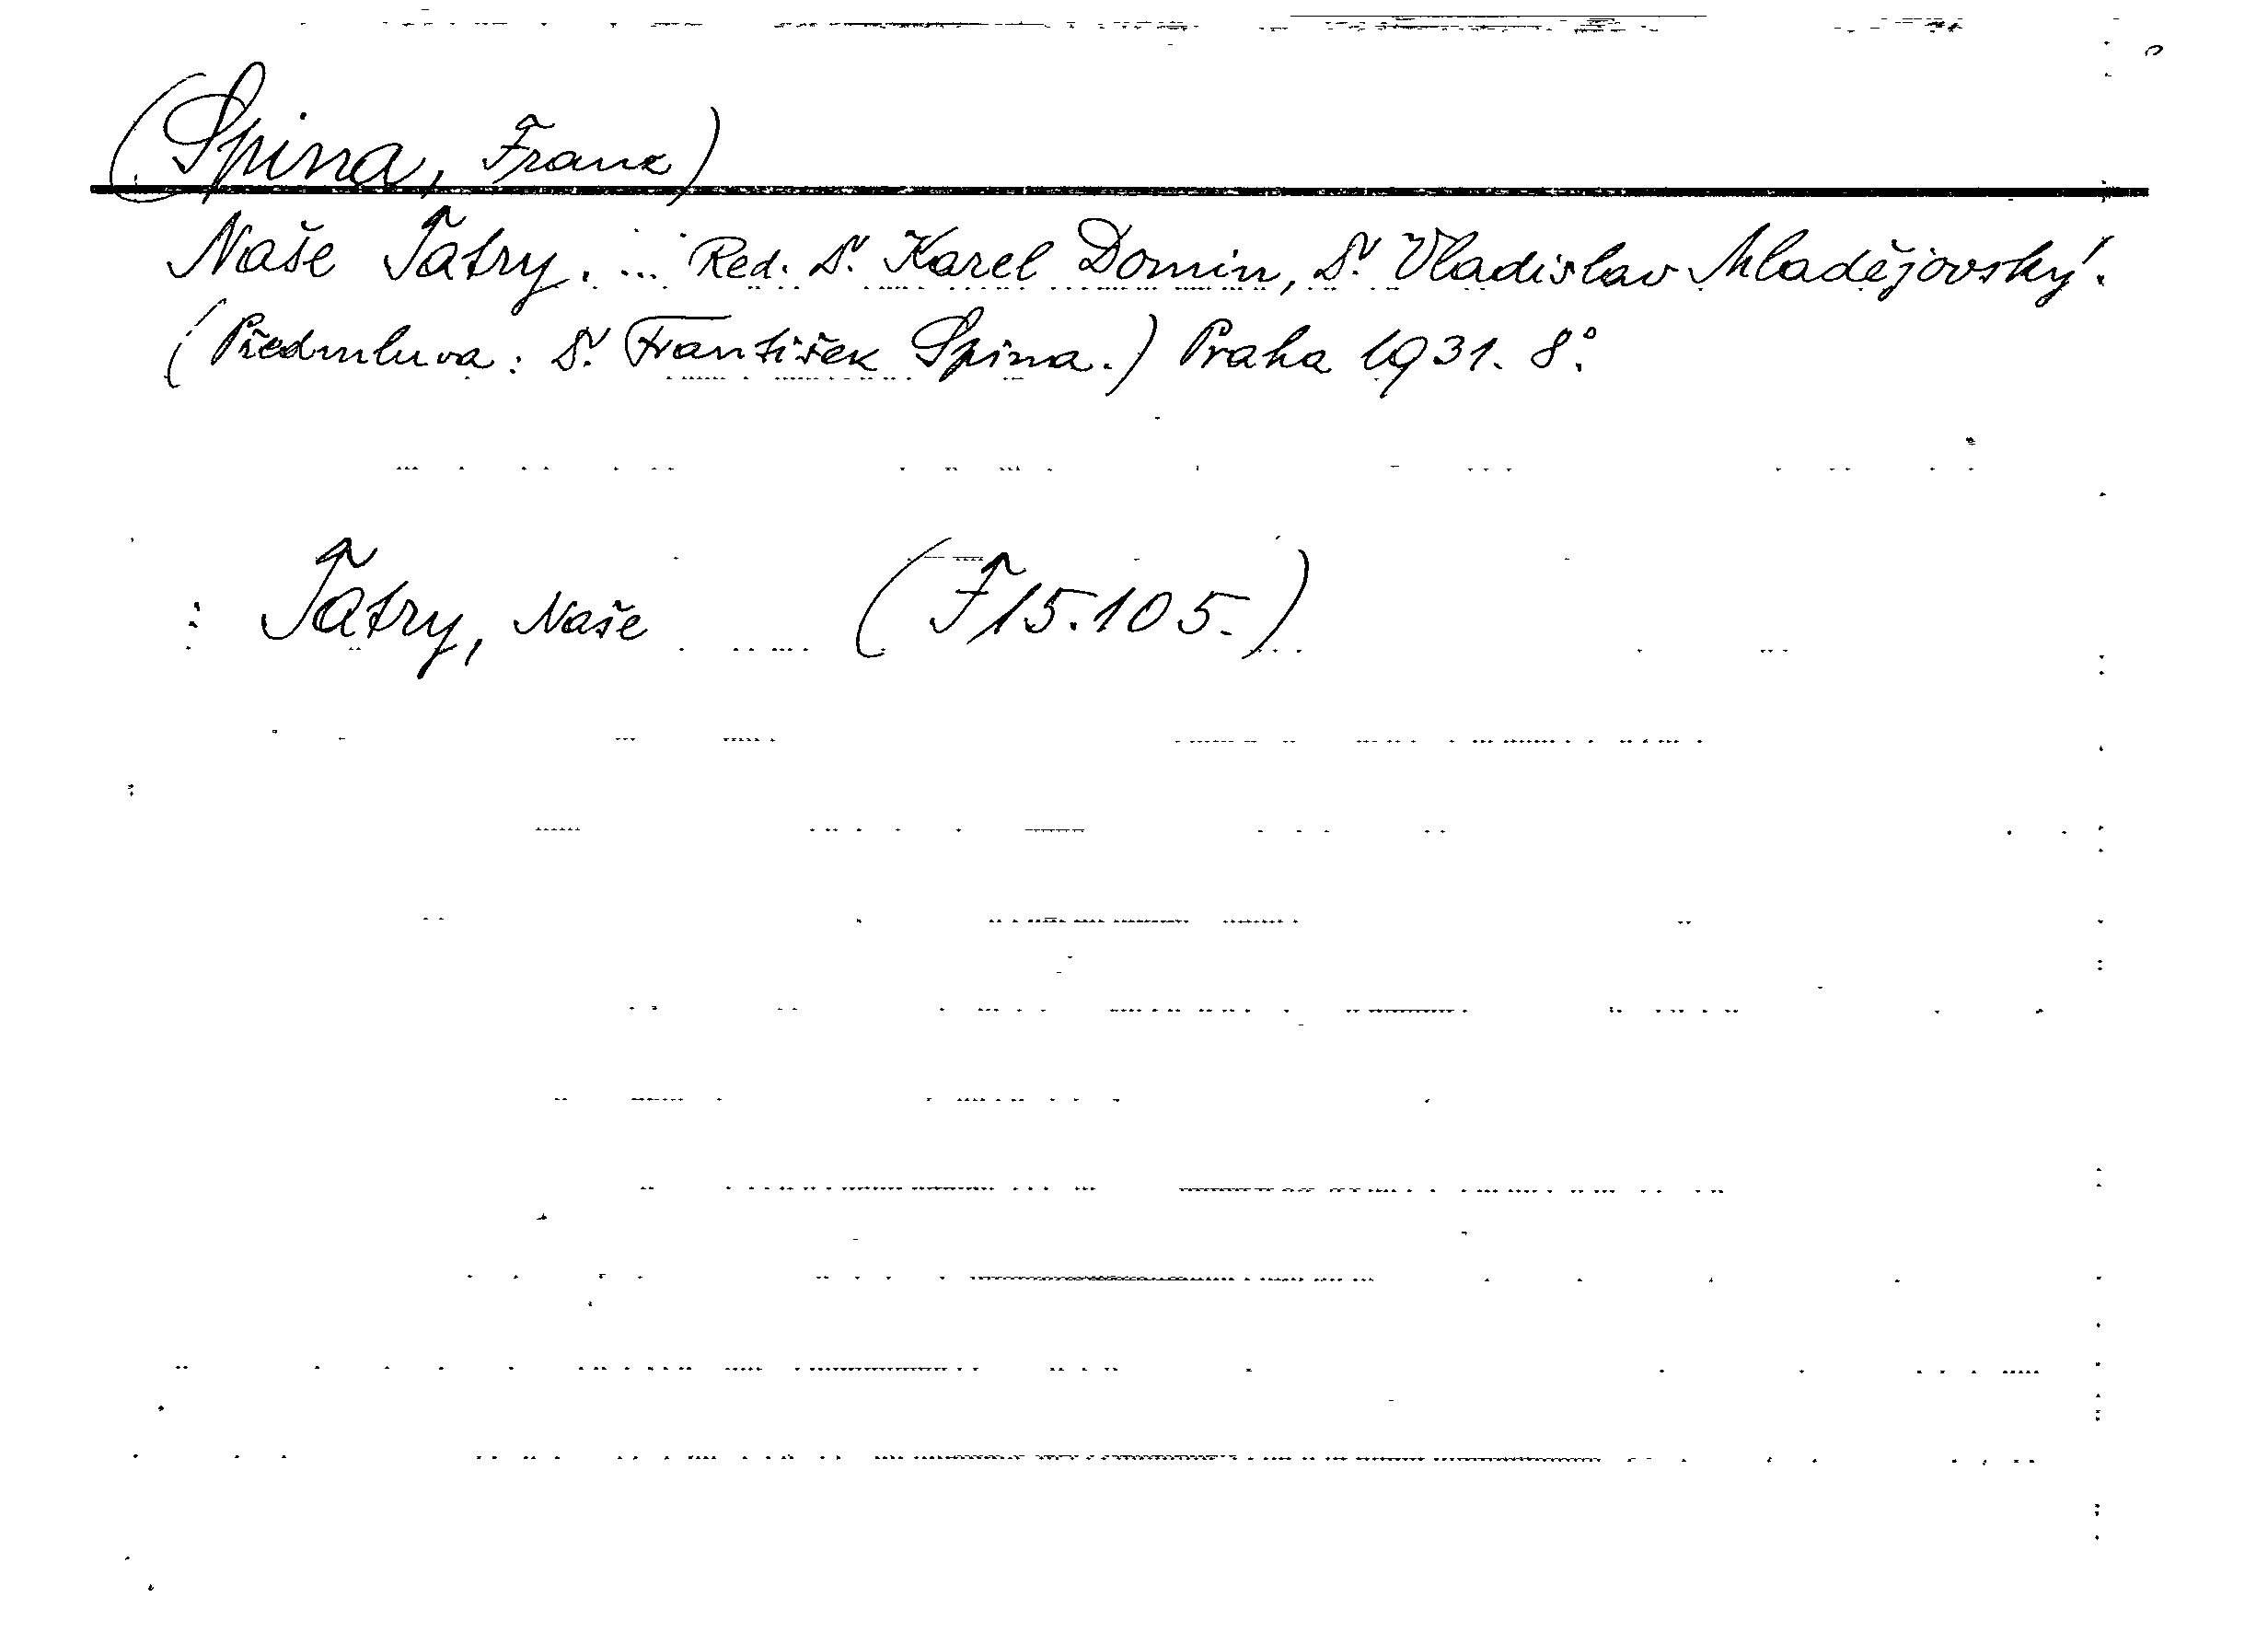 (Spina, Franz)
Naše Tatry. ... Red. Dr. Karel Domin, Dr. Vladislav Mladějovský.
(Předmluva: Dr. František Spina.) Praha 1931. 8°.
: Tatry, Naše (F 15.105.)